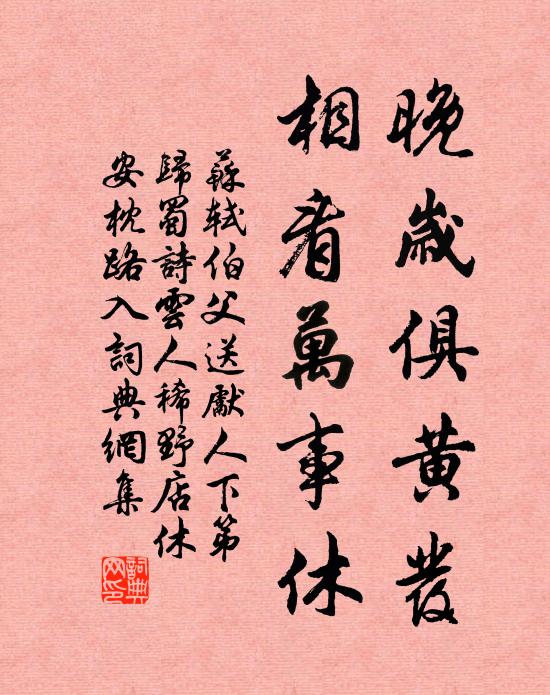 晚歲俱黃發
相看萬事休
蘇軾伯父送獻人下第
歸蜀詩雲人稀野店休
安枕路入詞典網集
詞典网印